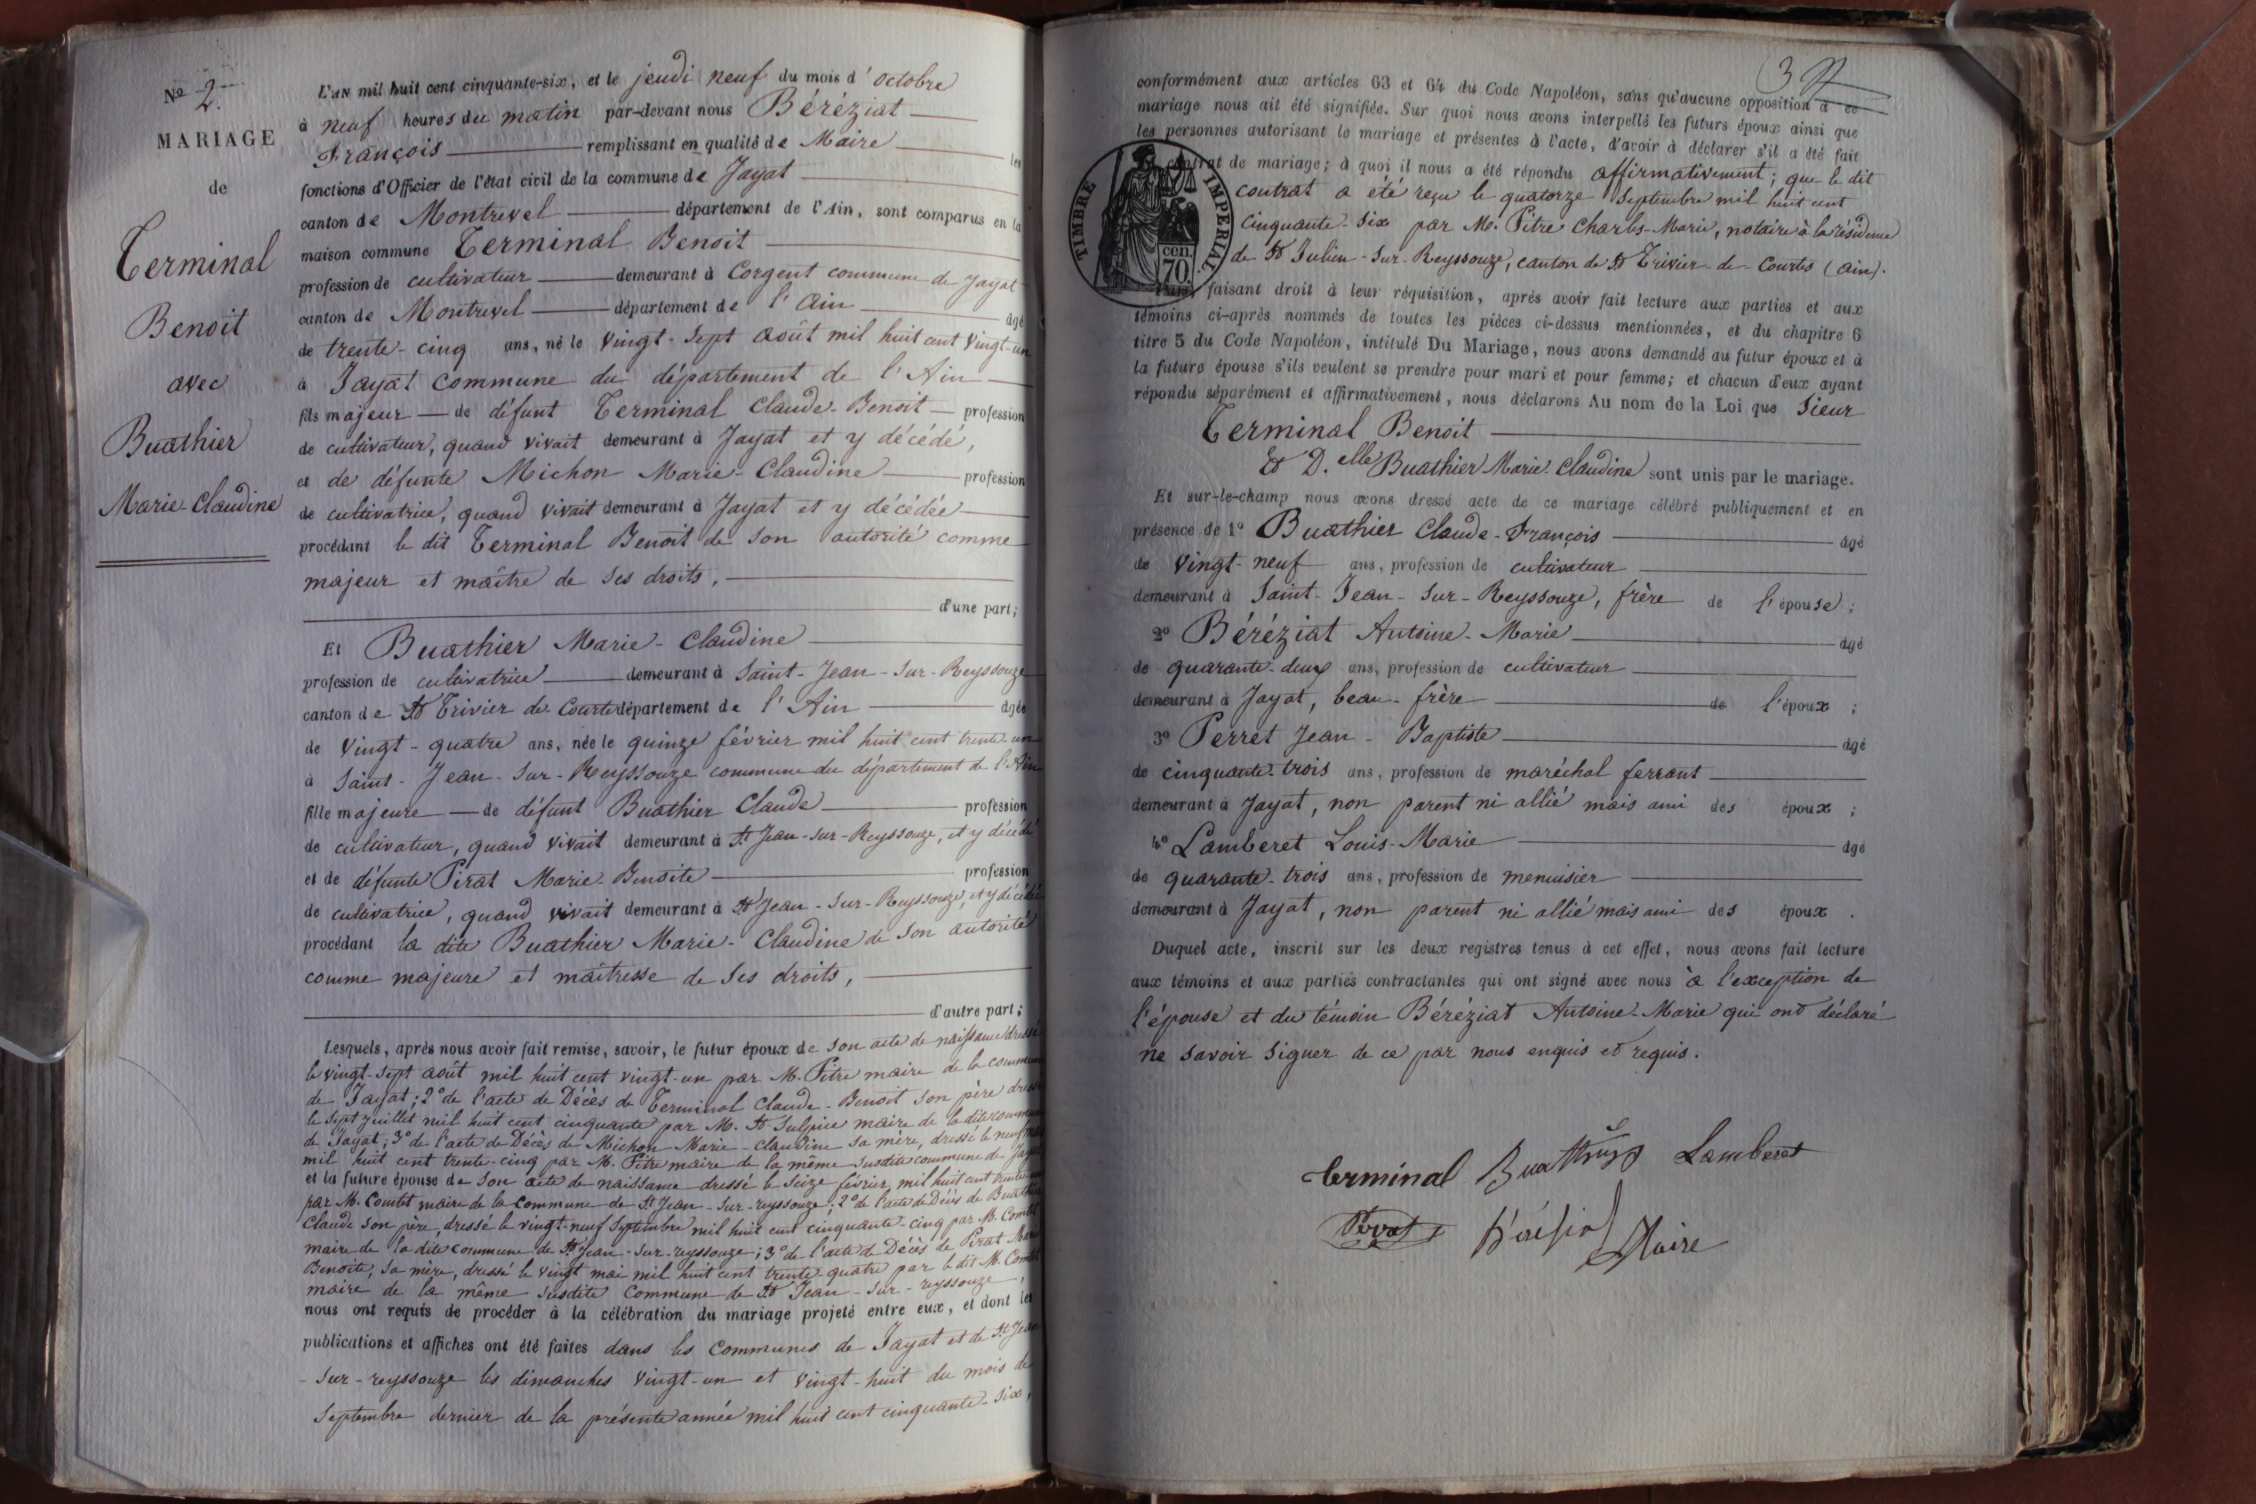 No 2.
MARIAGE
de
Terminal
Benoit
avec
Buathier
Marie-Claudine
L'AN mil huit cent cinquante-six, et le jeudi neuf du mois d'octobre
à neuf heures du matin par-devant nous Béréziat
François remplissant en qualité de Maire les
fonctions d'Officier de l'état civil de la commune de Jayat
canton de Montrevel département de l'Ain, sont comparus en la
maison commune Terminal Benoit
profession de cultivateur demeurant à Corgent commune de Jayat
canton de Montrevel département de l'Ain âgé
de trente-cinq ans, né le vingt-sept août mil huit cent vingt-un
à Jayat commune du département de l'Ain
fils majeur de défunt Terminal Claude-Benoit profession
de cultivateur, quand vivait demeurant à Jayat et y décédé,
et de défunte Michon Marie-Claudine profession
de cultivatrice, quand vivait demeurant à Jayat et y décédée
procédant le dit Terminal Benoit de son autorité comme
majeur et maître de ses droits,
d'une part;
Et Buathier Marie-Claudine
profession de cultivatrice demeurant à Saint-Jean-sur-Reyssouze
canton de St Trivier de Courtes département de l'Ain âgée
de vingt-quatre ans, née le quinze février mil huit cent trente-un
à Saint-Jean-sur-Reyssouze commune du département de l'Ain
fille majeure de défunt Buathier Claude profession
de cultivateur, quand vivait demeurant à St Jean-sur-Reyssouze, et y décédé
et de défunte Pirat Marie-Benoite profession
de cultivatrice, quand vivait demeurant à St Jean-sur-Reyssouze, et y décédée
procédant la dite Buathier Marie-Claudine de son autorité
comme majeure et maîtresse de ses droits,
d'autre part;
Lesquels, après nous avoir fait remise, savoir, le futur époux de son acte de naissance dressé
le vingt-sept août mil huit cent vingt-un par M. Pitre maire de la commune
de Jayat; 2° de l'acte de Décès de Terminal Claude-Benoit son père dressé
le sept juillet mil huit cent cinquante par M. St Sulpice maire de la dite commune
de Jayat; 3° de l'acte de Décès de Michon Marie-Claudine sa mère, dressé le neuf
mil huit cent trente-cinq par M. Pitre maire de la même susdite commune de Jayat
et la future épouse de son acte de naissance dressé le seize février mil huit cent trente
par M. Comtet maire de la commune de St Jean-sur-reyssouze; 2° de l'acte de Décès de Buathier
Claude son père, dressé le vingt-neuf Septembre mil huit cent cinquante-cinq par M. Comtet
maire de la dite commune de St Jean-sur-reyssouze; 3° de l'acte de Décès de Pirat Marie
Benoite, sa mère, dressé le vingt mai mil huit cent trente-quatre par le dit M. Comtet
maire de la même susdite commune de St Jean-sur-reyssouze,
nous ont requis de procéder à la célébration du mariage projeté entre eux, et dont les
publications et affiches ont été faites dans les communes de Jayat et de St Jean
sur-reyssouze les dimanches vingt-un et vingt-huit du mois de
Septembre dernier de la présente année mil huit cent cinquante-six,
3
conformément aux articles 63 et 64 du Code Napoléon, sans qu'aucune opposition à ce
mariage nous ait été signifiée. Sur quoi nous avons interpellé les futurs époux ainsi que
les personnes autorisant le mariage et présentes à l'acte, d'avoir à déclarer s'il a été fait
contrat de mariage; à quoi il nous a été répondu affirmativement; que le dit
contrat a été reçu le quatorze Septembre mil huit cent
cinquante-six par M. Pitre Charles-Marie, notaire à la résidence
de St Julien-sur-Reyssouze, canton de St Trivier-de-Courtes (Ain).
TIMBRE IMPERIAL
cen. 70
Puis, faisant droit à leur réquisition, après avoir fait lecture aux parties et aux
témoins ci-après nommés de toutes les pièces ci-dessus mentionnées, et du chapitre 6
titre 5 du Code Napoléon, intitulé Du Mariage, nous avons demandé au futur époux et à
la future épouse s'ils veulent se prendre pour mari et pour femme; et chacun d'eux ayant
répondu séparément et affirmativement, nous déclarons Au nom de la Loi que Sieur
Terminal Benoit
Et D.elle Buathier Marie-Claudine sont unis par le mariage.
Et sur-le-champ nous avons dressé acte de ce mariage célébré publiquement et en
présence de 1° Buathier Claude-François âgé
de vingt-neuf ans, profession de cultivateur
demeurant à Saint-Jean-sur-Reyssouze, frère de l'épouse;
2° Béréziat Antoine-Marie âgé
de quarante-deux ans, profession de cultivateur
demeurant à Jayat, beau-frère de l'époux;
3° Perret Jean-Baptiste âgé
de cinquante-trois ans, profession de maréchal ferrant
demeurant à Jayat, non parent ni allié mais ami des époux;
4° Lamberet Louis-Marie âgé
de quarante-trois ans, profession de menuisier
demeurant à Jayat, non parent ni allié mais ami des époux.
Duquel acte, inscrit sur les deux registres tenus à cet effet, nous avons fait lecture
aux témoins et aux parties contractantes qui ont signé avec nous à l'exception de
l'épouse et du témoin Béréziat Antoine-Marie qui ont déclaré
ne savoir signer de ce par nous enquis et requis.
terminal Lamberet
Maire